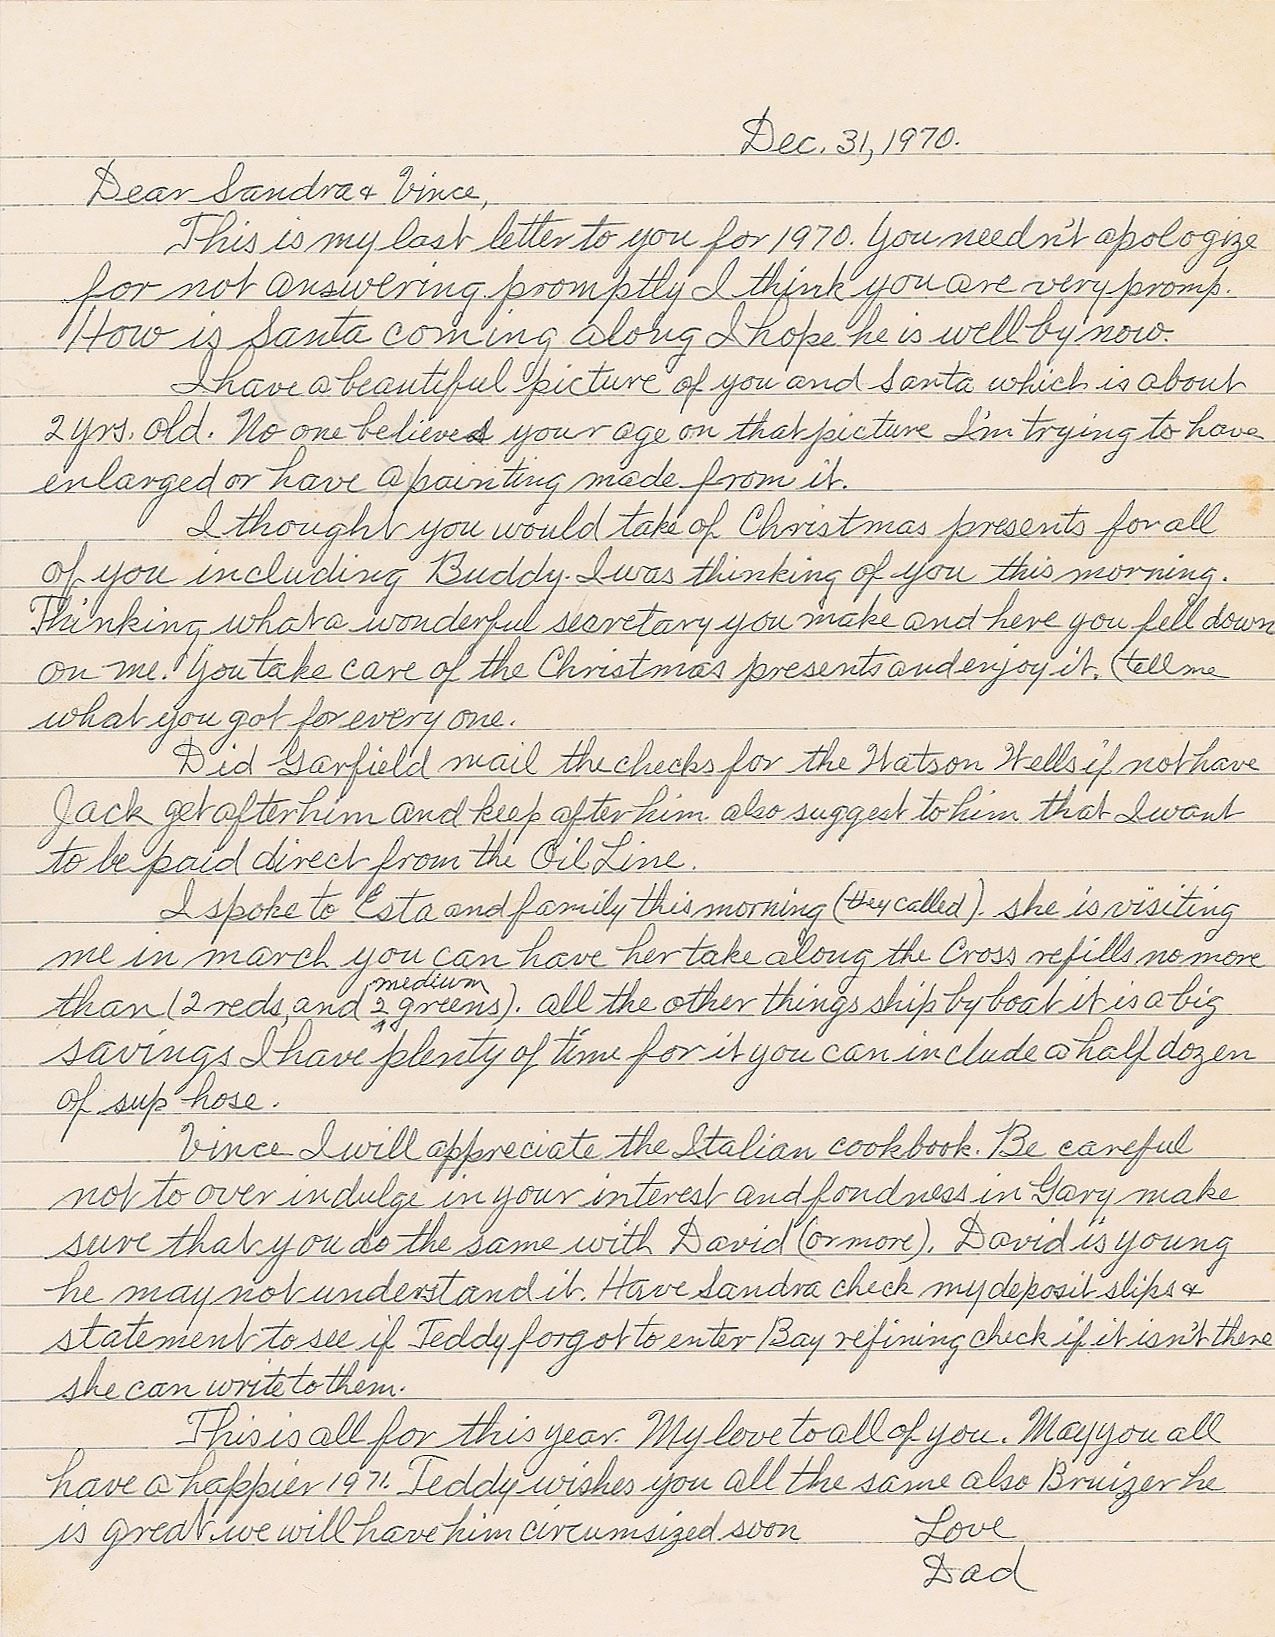 Dec. 31, 1970.
Dear Sandra & Vince,
This is my last letter to you for 1970. You needn't apologize
for not answering promptly I think you are very promp.
How is Santa coming along I hope he is well by now.
I have a beautiful picture of you and Santa which is about
2 yrs. old. No one believes your age on that picture I'm trying to have
enlarged or have a painting made from it.
I thought you would take of Christmas presents for all
of you including Buddy. I was thinking of you this morning.
Thinking what a wonderful secretary you make and here you fell down
on me. You take care of the Christmas presents and enjoy it. (tell me
what you got for every one.
Did Garfield mail the checks for the Watson Wells if not have
Jack get after him and keep after him also suggest to him that I want
to be paid direct from the Oil Line.
I spoke to Esta and family this morning (they called). she is visiting
me in march you can have her take along the Cross refills no more
medium
than (2 reds, and 2 greens). all the other things ship by boat it is a big
savings I have plenty of time for it you can include a half dozen
of sup hose.
Vince I will appreciate the Italian cookbook. Be careful
not to over indulge in your interest and fondness in Gary make
sure that you do the same with David (or more). David is young
he may not understand it. Have Sandra check my deposit slips &
statement to see if Teddy forgot to enter Bay refining check if it isn't there
she can write to them.
This is all for this year. My love to all of you. May you all
have a happier 1971. Teddy wishes you all the same also Bruizer he
is great we will have him circumsized soon
Love
Dad